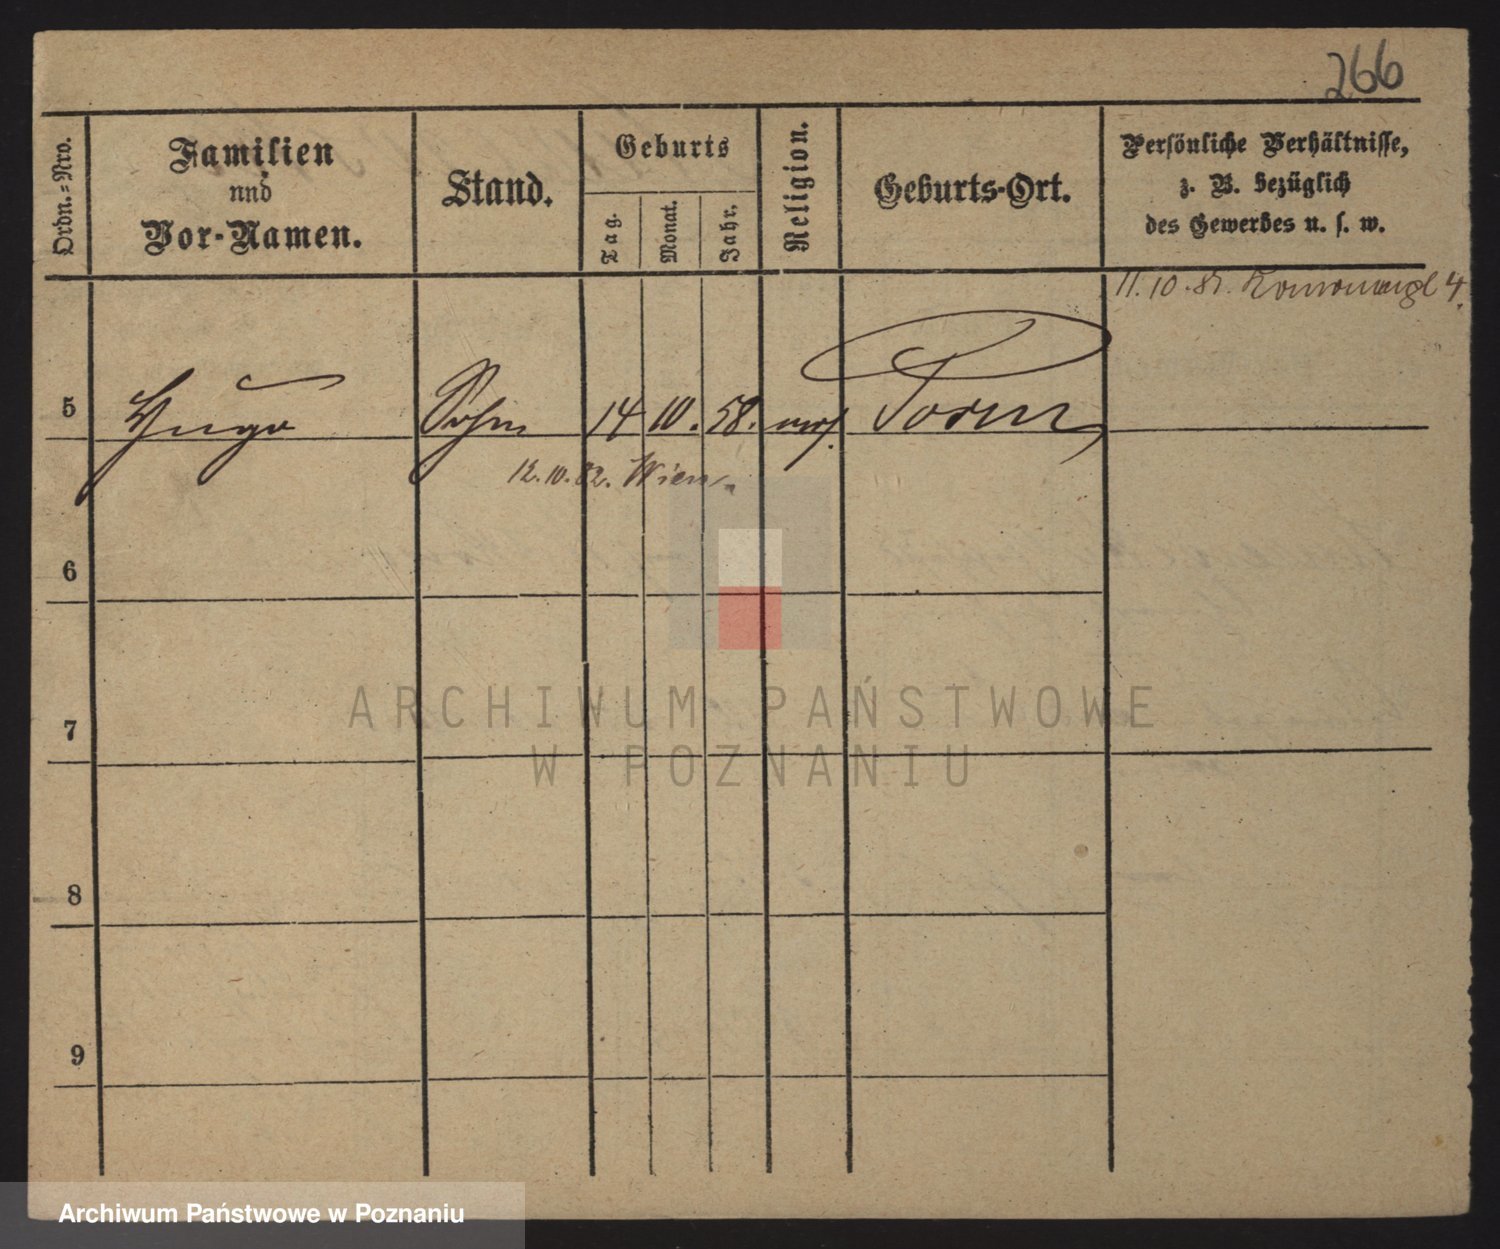 266
Ordn.=Nro.
Familien
und
Vor-Namen.
Stand.
Geburts
Tag.
Monat.
Jahr.
Religion.
Geburts-Ort.
Persönliche Verhältnisse,
z. B. bezüglich
des Gewerbes u. s. w.
11. 10. 81. 4.
5 Hugo Sohn 14 10. 58. mos. Posen
12. 10. 82. Wien
6
ARCHIWUM PAŃSTWOWE
7
W POZNANIU
8
9
Archiwum Państwowe w Poznaniu